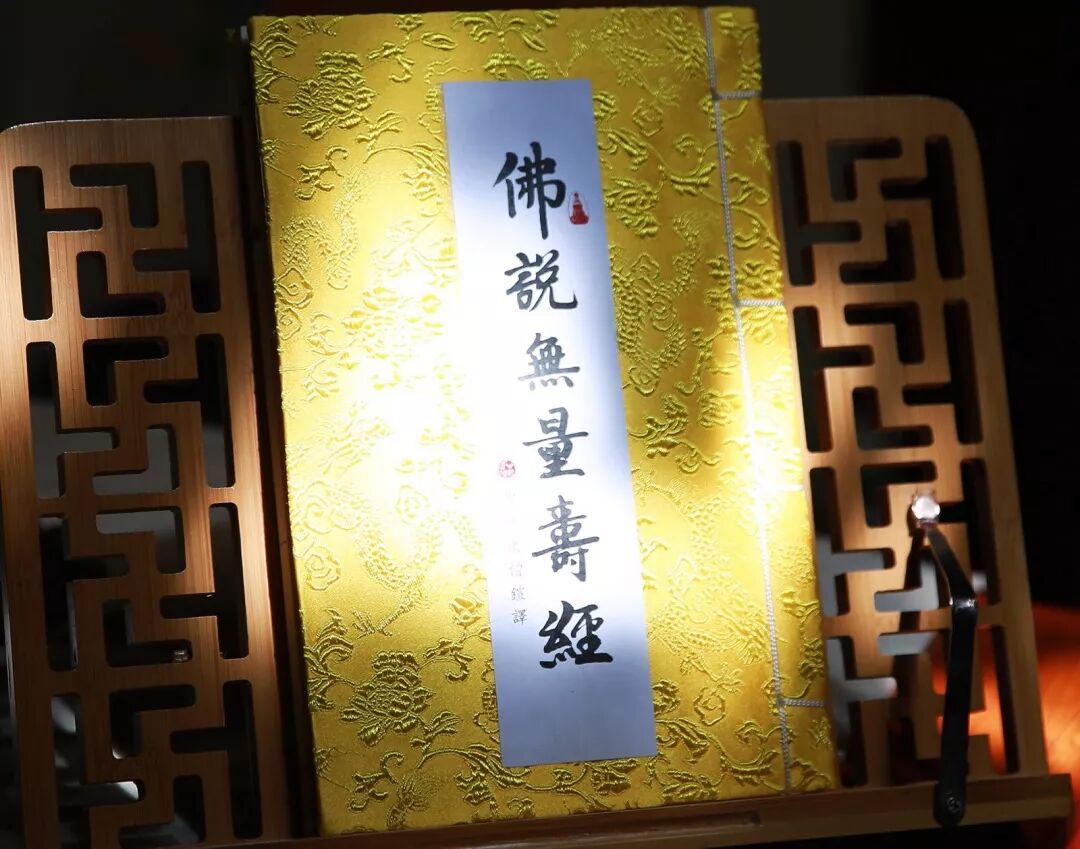 佛說無量壽經
僧鎧譯